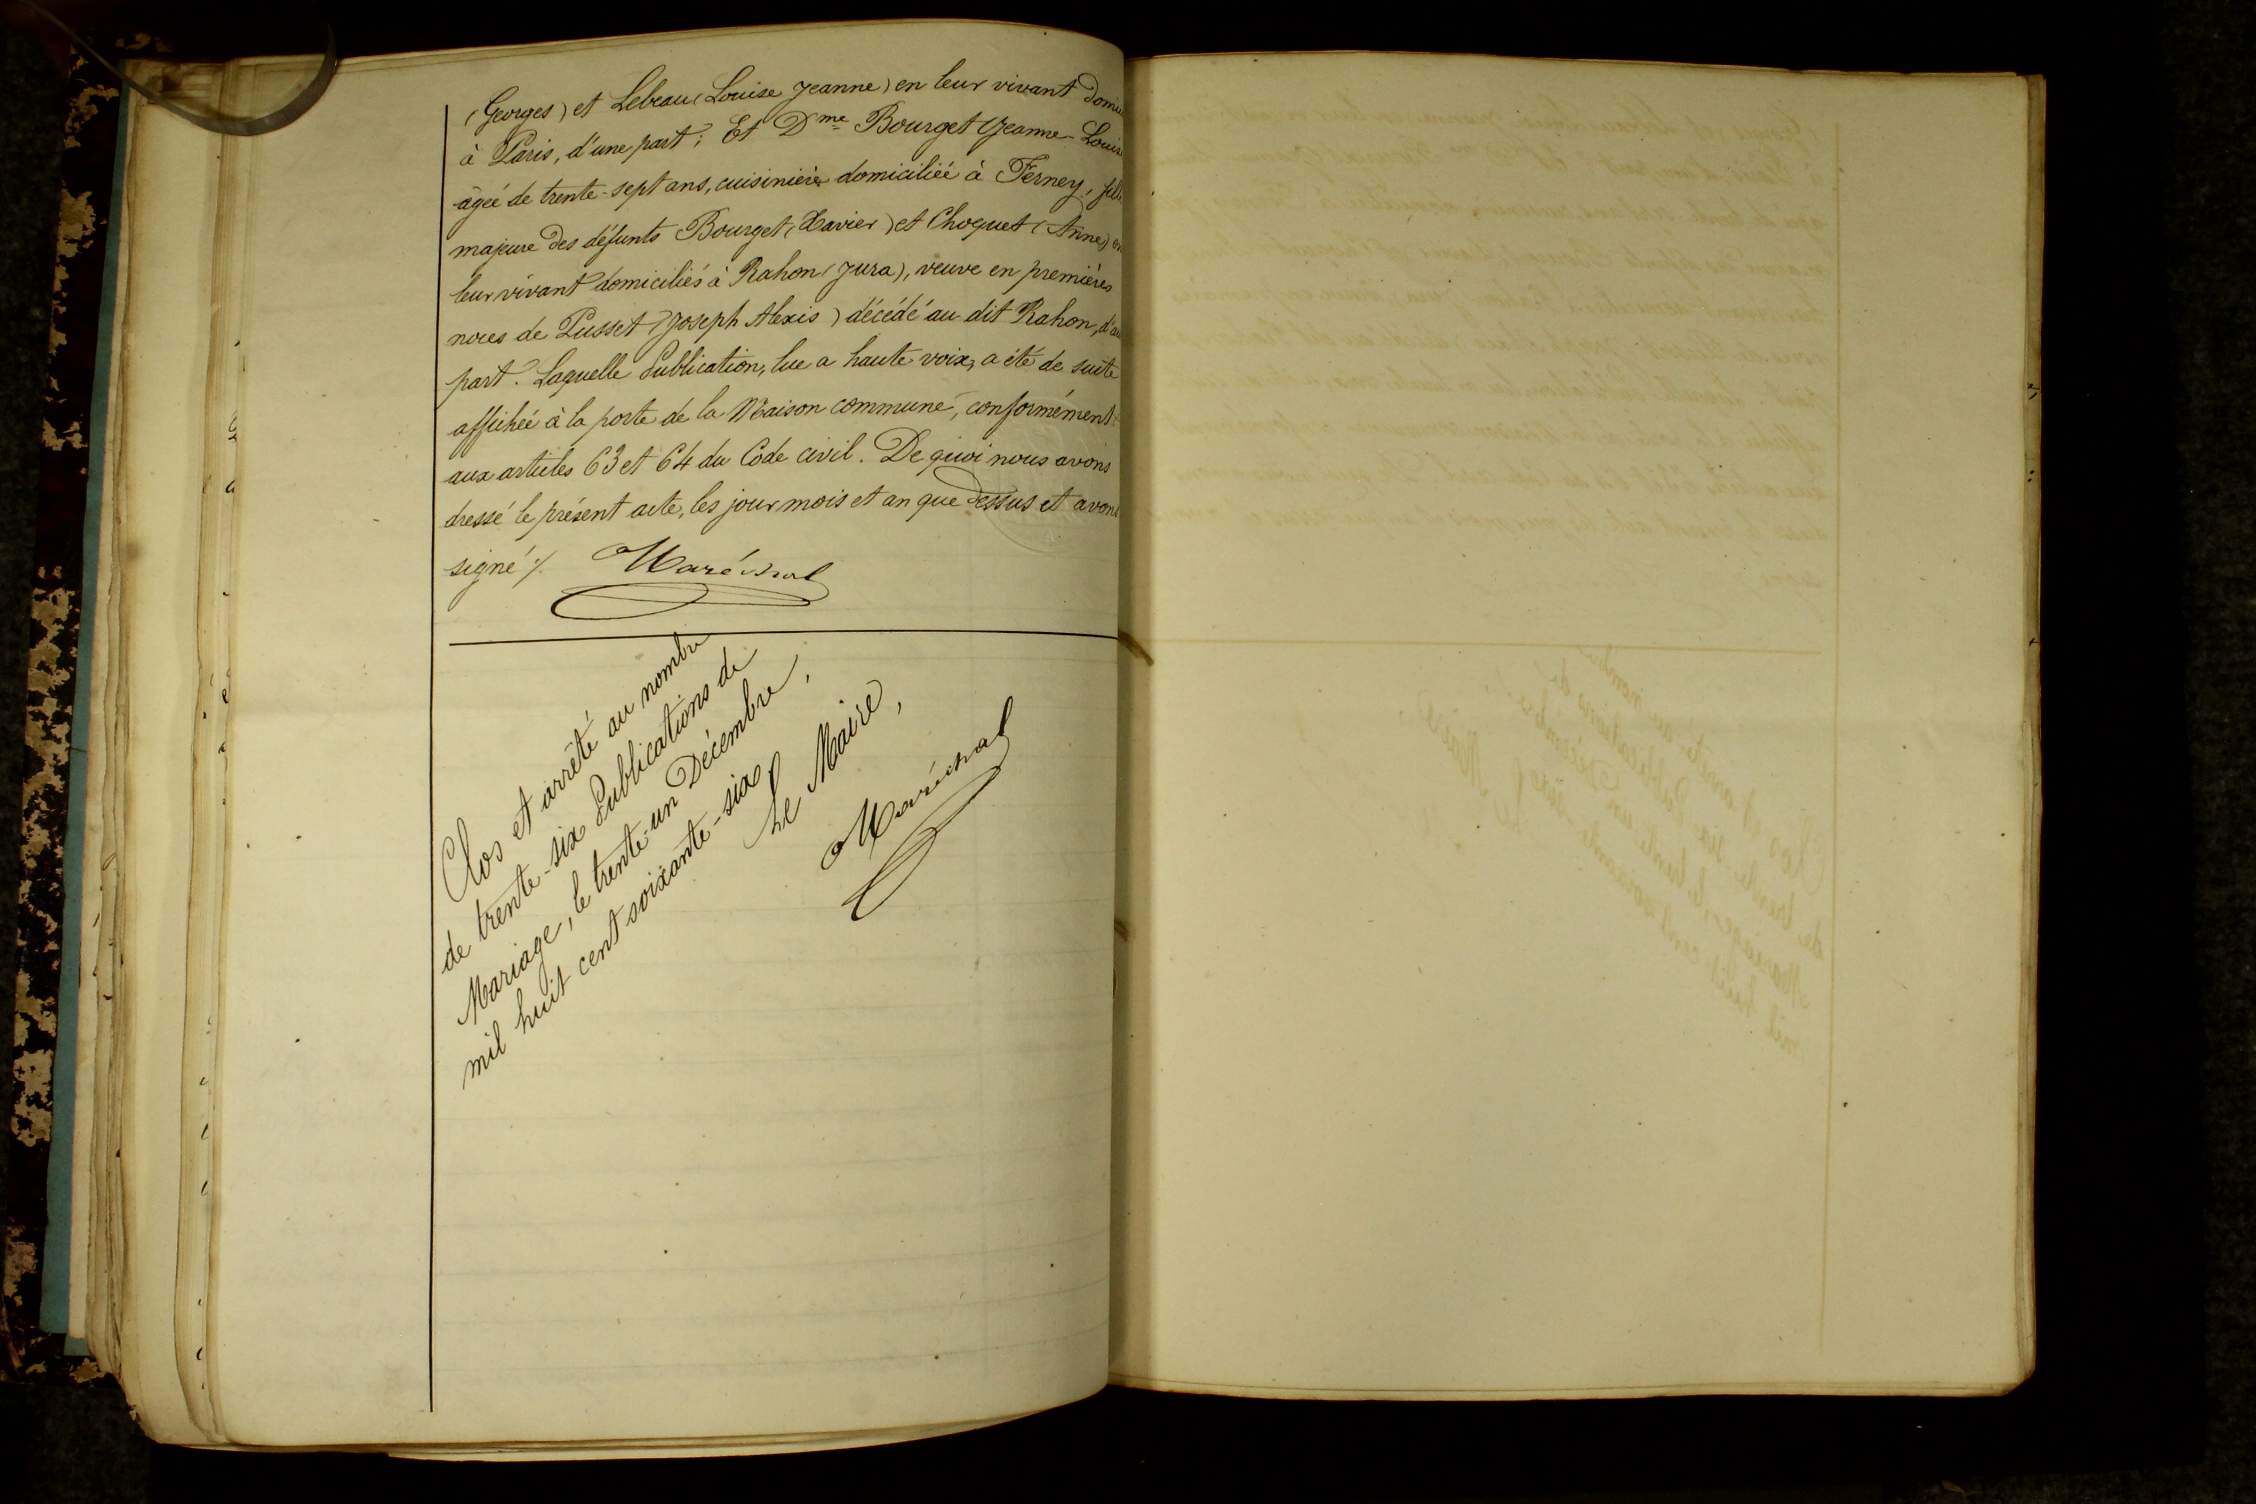 (Georges) et Lebeau (Louise Jeanne) en leur vivant
à Paris, d'une part; Et Dme Bourget (Jeanne-Louise
âgée de trente-sept ans, cuisinière domiciliée à Ferney,
majeure des défunts Bourget (Xavier) et Choquet (Anne) en
leur vivant domiciliés à Rahon (Jura), veuve en premières
noces de Pusset (Joseph Alexis) décédé au dit Rahon,
part. Laquelle Publication, lue a haute voix, a été de suite
affichée à la porte de la Maison commune, conformément
aux articles 63 et 64 du Code civil. De quoi nous avons
dressé le présent acte, les jour mois et an que dessus et avons
signé ./. Maréchal
Clos et arrêté au nombre
de trente-six Publications de
Mariage, le trente-un Décembre,
mil huit cent soixante-six
Le Maire,
Maréchal